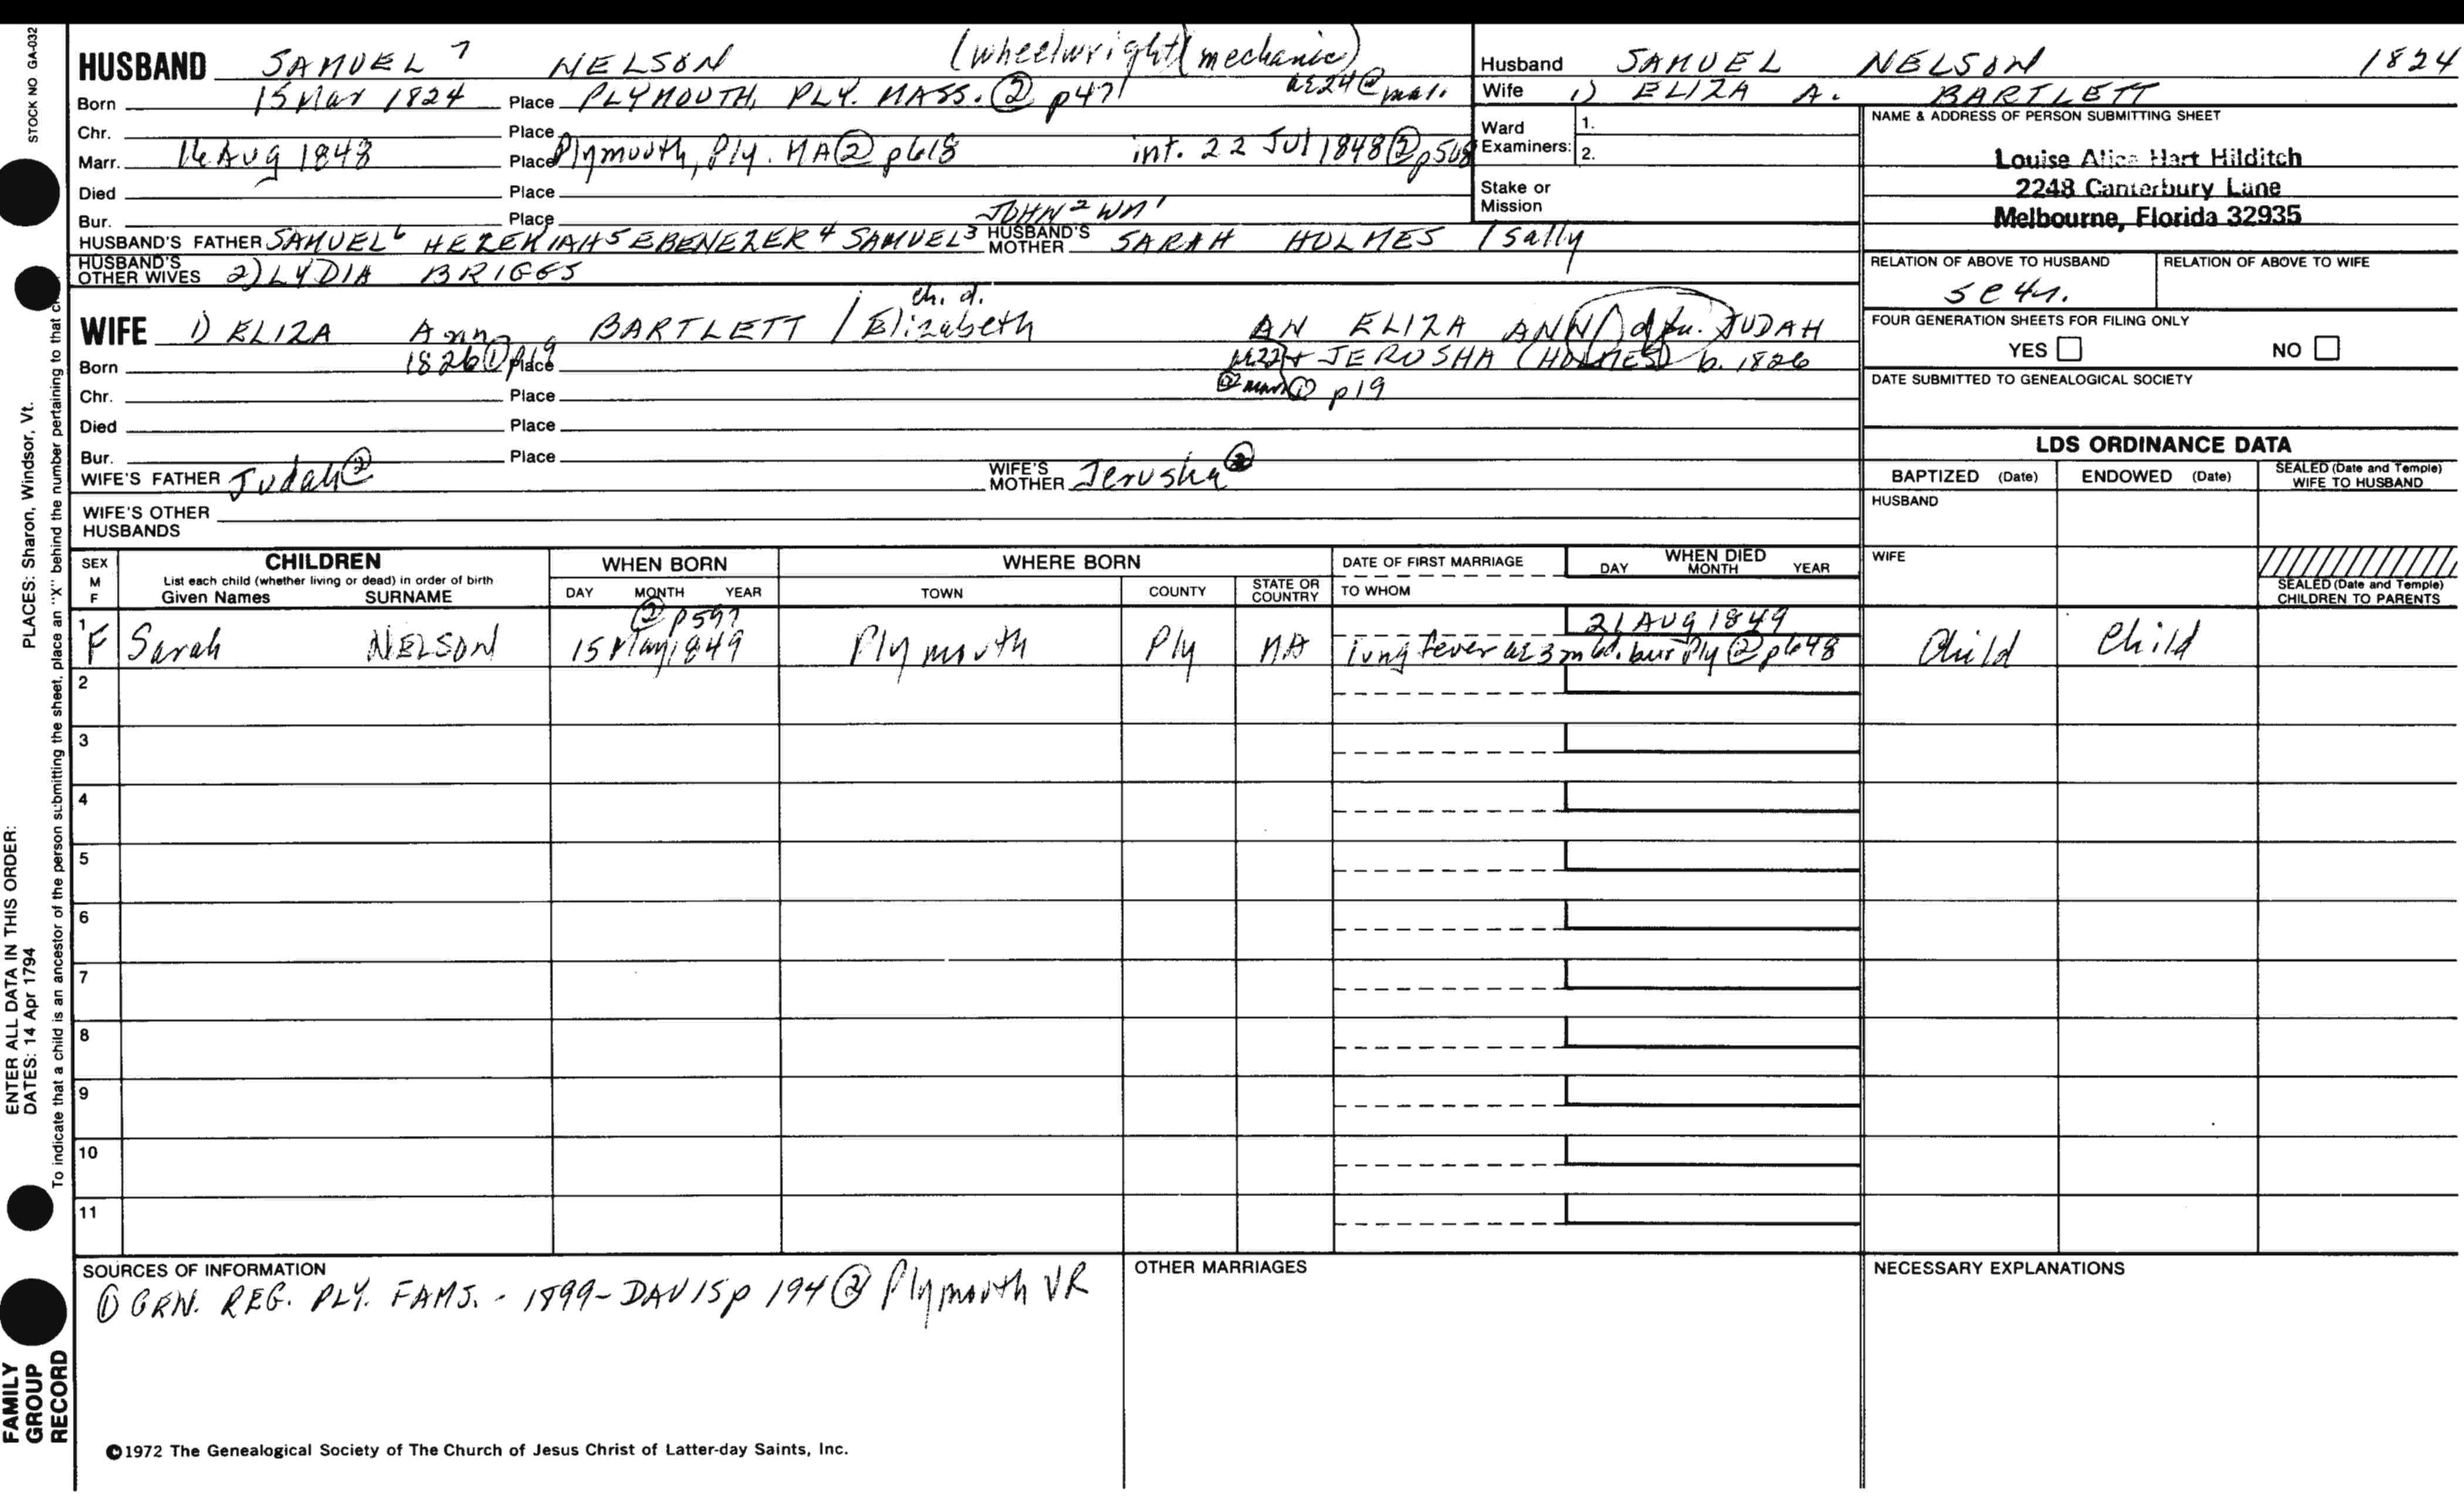 STOCK NO GA-032
HUSBAND SAMUEL 7 NELSON (wheelwright (mechanic)
Born 15 Mar 1824 Place PLYMOUTH, PLY. MASS. ② p471 ae24@mar.
Chr. Place
Marr. 16 Aug 1848 Place Plymouth, Ply. MA ② p618 int. 22 Jul 1848 ② p568
Died Place
Bur. Place JOHN 2 WM 1
HUSBAND'S FATHER SAMUEL 6 HEZEKIAH 5 EBENEZER 4 SAMUEL 3 HUSBAND'S MOTHER SARAH HOLMES / Sally
HUSBAND'S OTHER WIVES 2) LYDIA BRIGGS
Husband SAMUEL NELSON 1824
Wife 1) ELIZA A. BARTLETT
Ward Examiners: 1. 2.
Stake or Mission
NAME & ADDRESS OF PERSON SUBMITTING SHEET
Louise Alice Hart Hilditch
2248 Canterbury Lane
Melbourne, Florida 32935
RELATION OF ABOVE TO HUSBAND RELATION OF ABOVE TO WIFE
FOUR GENERATION SHEETS FOR FILING ONLY
YES NO
DATE SUBMITTED TO GENEALOGICAL SOCIETY
ch. d.
WIFE 1) ELIZA Ann BARTLETT / Elizabeth AN ELIZA ANN JUDAH
Born 1826 ① p19 Place ae22 + JERUSHA (HOLMES) b. 1826
Chr. Place @ mar ① p19
Died Place
Bur. Place
WIFE'S FATHER Judah ② WIFE'S MOTHER Jerusha ②
WIFE'S OTHER HUSBANDS
LDS ORDINANCE DATA
BAPTIZED (Date) ENDOWED (Date) SEALED (Date and Temple) WIFE TO HUSBAND
HUSBAND
WIFE
SEALED (Date and Temple) CHILDREN TO PARENTS
SEX M F
CHILDREN
List each child (whether living or dead) in order of birth
Given Names SURNAME
WHEN BORN
DAY MONTH YEAR
WHERE BORN
TOWN COUNTY STATE OR COUNTRY
DATE OF FIRST MARRIAGE
TO WHOM
WHEN DIED
DAY MONTH YEAR
② p597 21 AUG 1849
1 F Sarah NELSON 15 May 1849 Plymouth Ply MA lung fever ae 3m 6d. bur Ply ② p648 Child Child
2
3
4
5
6
7
8
9
10
11
SOURCES OF INFORMATION
① GEN. REG. PLY. FAMS. - 1899 - DAVIS p 194 ② Plymouth VR
OTHER MARRIAGES
NECESSARY EXPLANATIONS
©1972 The Genealogical Society of The Church of Jesus Christ of Latter-day Saints, Inc.
ENTER ALL DATA IN THIS ORDER:
DATES: 14 Apr 1794 PLACES: Sharon, Windsor, Vt.
To indicate that a child is an ancestor of the person submitting the sheet, place an "X" behind the number pertaining to that
FAMILY
GROUP
RECORD